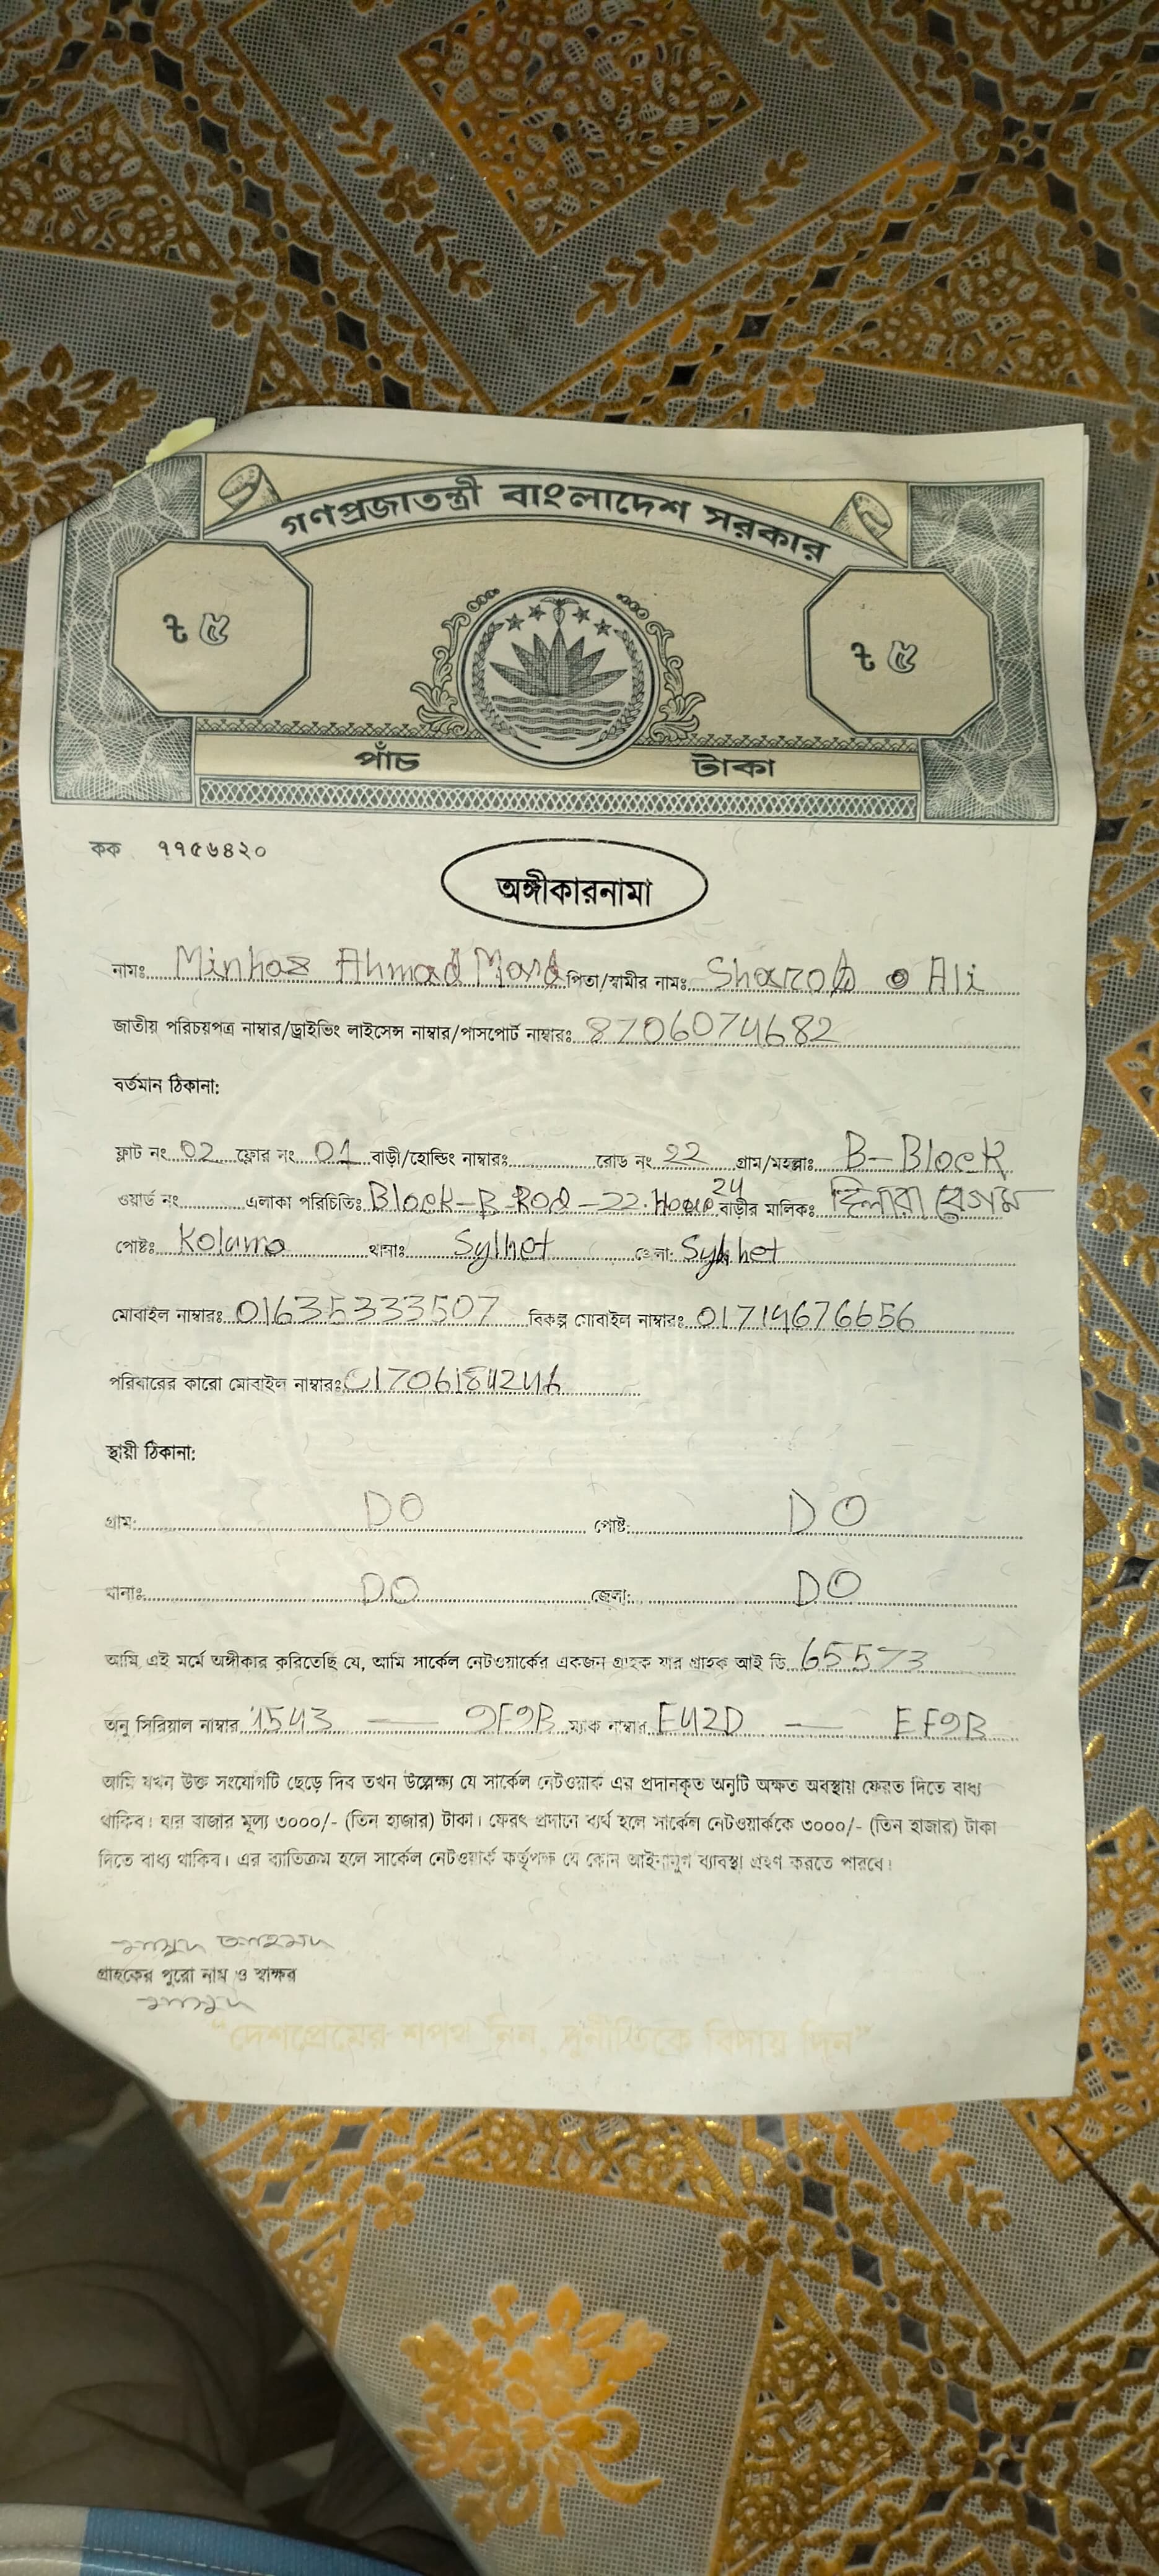 গণপ্রজাতন্ত্রী বাংলাদেশ সরকার
৳ ৫ ৳ ৫
পাঁচ টাকা
কক ৭৭৫৬৪২০
অঙ্গীকারনামা
নামঃ Minhaz Ahmad পিতা/স্বামীর নামঃ Ali
জাতীয় পরিচয়পত্র নাম্বার/ড্রাইভিং লাইসেন্স নাম্বার/পাসপোর্ট নাম্বারঃ 8706074682
বর্তমান ঠিকানা:
ফ্লাট নং 02 ফ্লোর নং 01 বাড়ী/হোল্ডিং নাম্বারঃ রোড নং 22 গ্রাম/মহল্লাঃ B-Block
ওয়ার্ড নং এলাকা পরিচিতিঃ Block-B-Rod-22. 24 বাড়ীর মালিকঃ বেগম
পোষ্টঃ থানাঃ Sylhet জেলা: Sylhet
মোবাইল নাম্বারঃ 01635333507 বিকল্প মোবাইল নাম্বারঃ 01714676656
পরিবারের কারো মোবাইল নাম্বারঃ 01706184246
স্থায়ী ঠিকানা:
গ্রাম: DO পোষ্ট: DO
থানাঃ DO জেলা: DO
আমি এই মর্মে অঙ্গীকার করিতেছি যে, আমি সার্কেল নেটওয়ার্কের একজন গ্রাহক যার গ্রাহক আই ডি 65573
অনু সিরিয়াল নাম্বার 1543 — 9F9B ম্যাক নাম্বার E42D — EF9B
আমি যখন উক্ত সংযোগটি ছেড়ে দিব তখন উল্লেক্ষ্য যে সার্কেল নেটওয়ার্ক এর প্রদানকৃত অনুটি অক্ষত অবস্থায় ফেরত দিতে বাধ্য
থাকিব। যার বাজার মূল্য ৩০০০/- (তিন হাজার) টাকা। ফেরৎ প্রদানে ব্যর্থ হলে সার্কেল নেটওয়ার্ককে ৩০০০/- (তিন হাজার) টাকা
দিতে বাধ্য থাকিব। এর ব্যাতিক্রম হলে সার্কেল নেটওয়ার্ক কর্তৃপক্ষ যে কোন আইনানুগ ব্যাবস্থা গ্রহণ করতে পারবে।
গ্রাহকের পুরো নাম ও স্বাক্ষর
"দেশপ্রেমের শপথ নিন, দুর্নীতিকে বিদায় দিন"